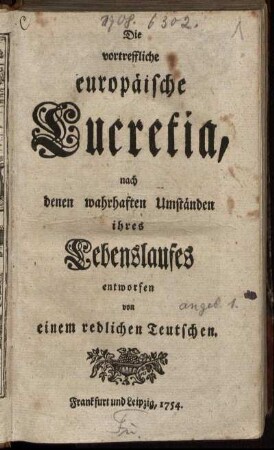 Die
vortreffliche
europäische
Lucretia,
nach
denen wahrhaften Umständen
ihres
Lebenslaufes
entworfen
von
angeb. 1.
einem redlichen Teutschen.
Frankfurt und Leipzig, 1754.